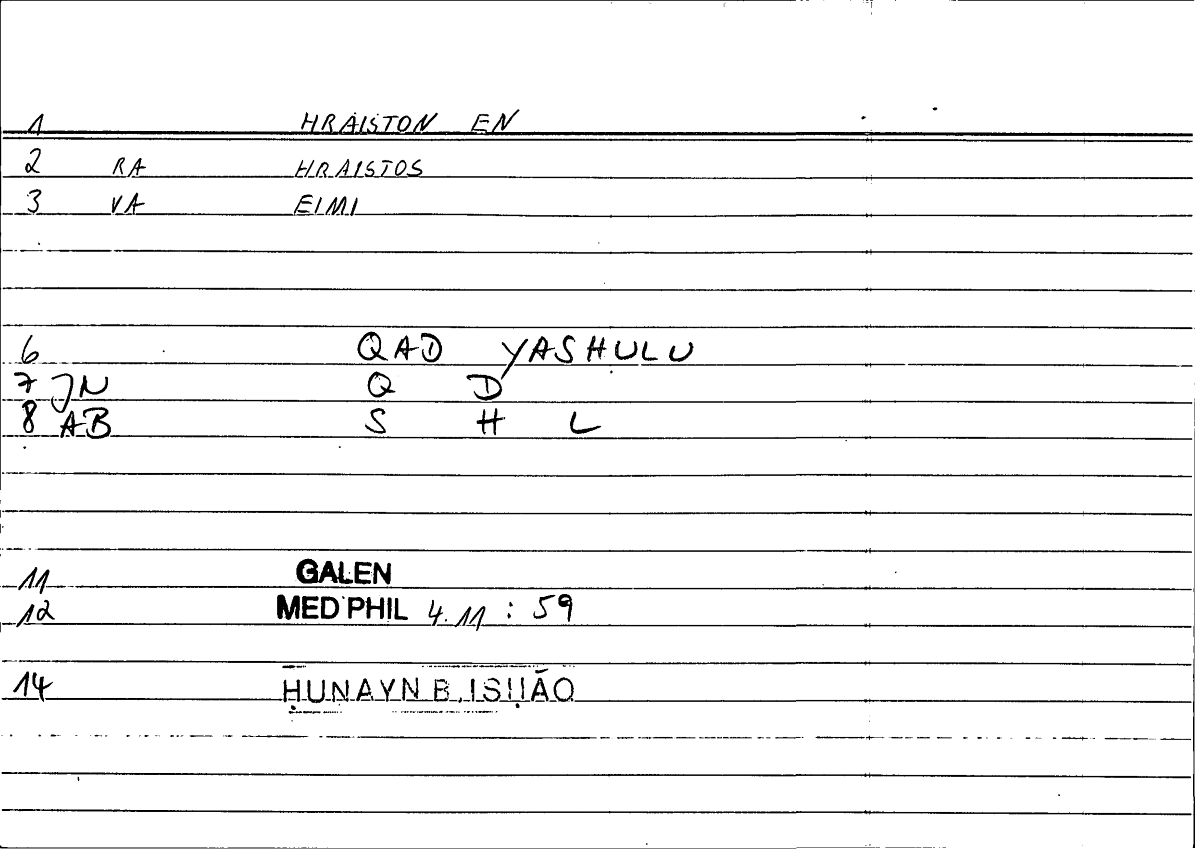 1 HRAISTON EN
2 RA HRAISTOS
3 VA EIMI
6 QAD YASHULU
7 JN Q D
8 AB S H L
11 GALEN
12 MED PHIL 4.11 : 59
14 ḤUNAYN B. ISḤĀQ